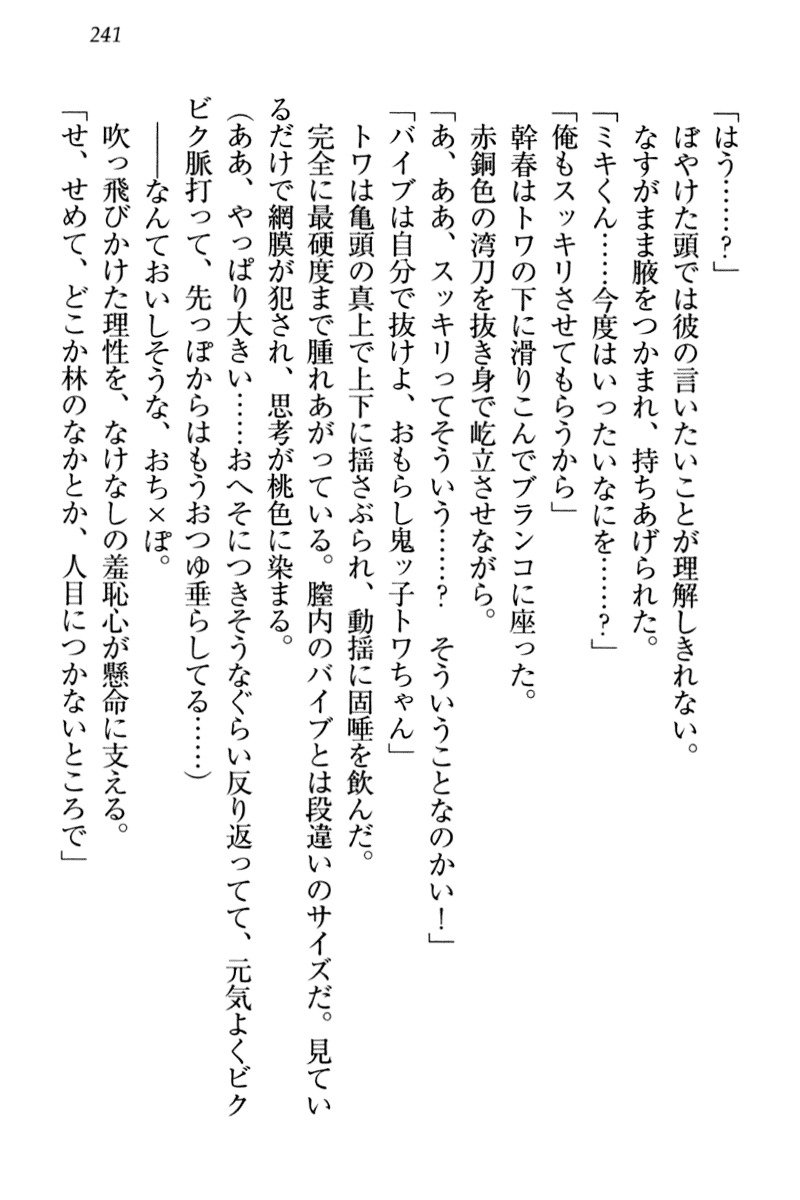 241
「はう……？」
ぼやけた頭では彼の言いたいことが理解しきれない。
なすがまま腋をつかまれ、持ちあげられた。
「ミキくん……今度はいったいなにを……？」
「俺もスッキリさせてもらうから」
幹春はトワの下に滑りこんでブランコに座った。
赤銅色の湾刀を抜き身で屹立させながら。
「あ、ああ、スッキリってそういう……？　そういうことなのかい！」
「バイブは自分で抜けよ、おもらし鬼ッ子トワちゃん」
トワは亀頭の真上で上下に揺さぶられ、動揺に固唾を飲んだ。
完全に最硬度まで腫れあがっている。膣内のバイブとは段違いのサイズだ。見てい
るだけで網膜が犯され、思考が桃色に染まる。
（ああ、やっぱり大きい……おへそにつきそうなぐらい反り返ってて、元気よくビク
ビク脈打って、先っぽからはもうおつゆ垂らしてる……）
――なんておいしそうな、おち×ぽ。
吹っ飛びかけた理性を、なけなしの羞恥心が懸命に支える。
「せ、せめて、どこか林のなかとか、人目につかないところで」